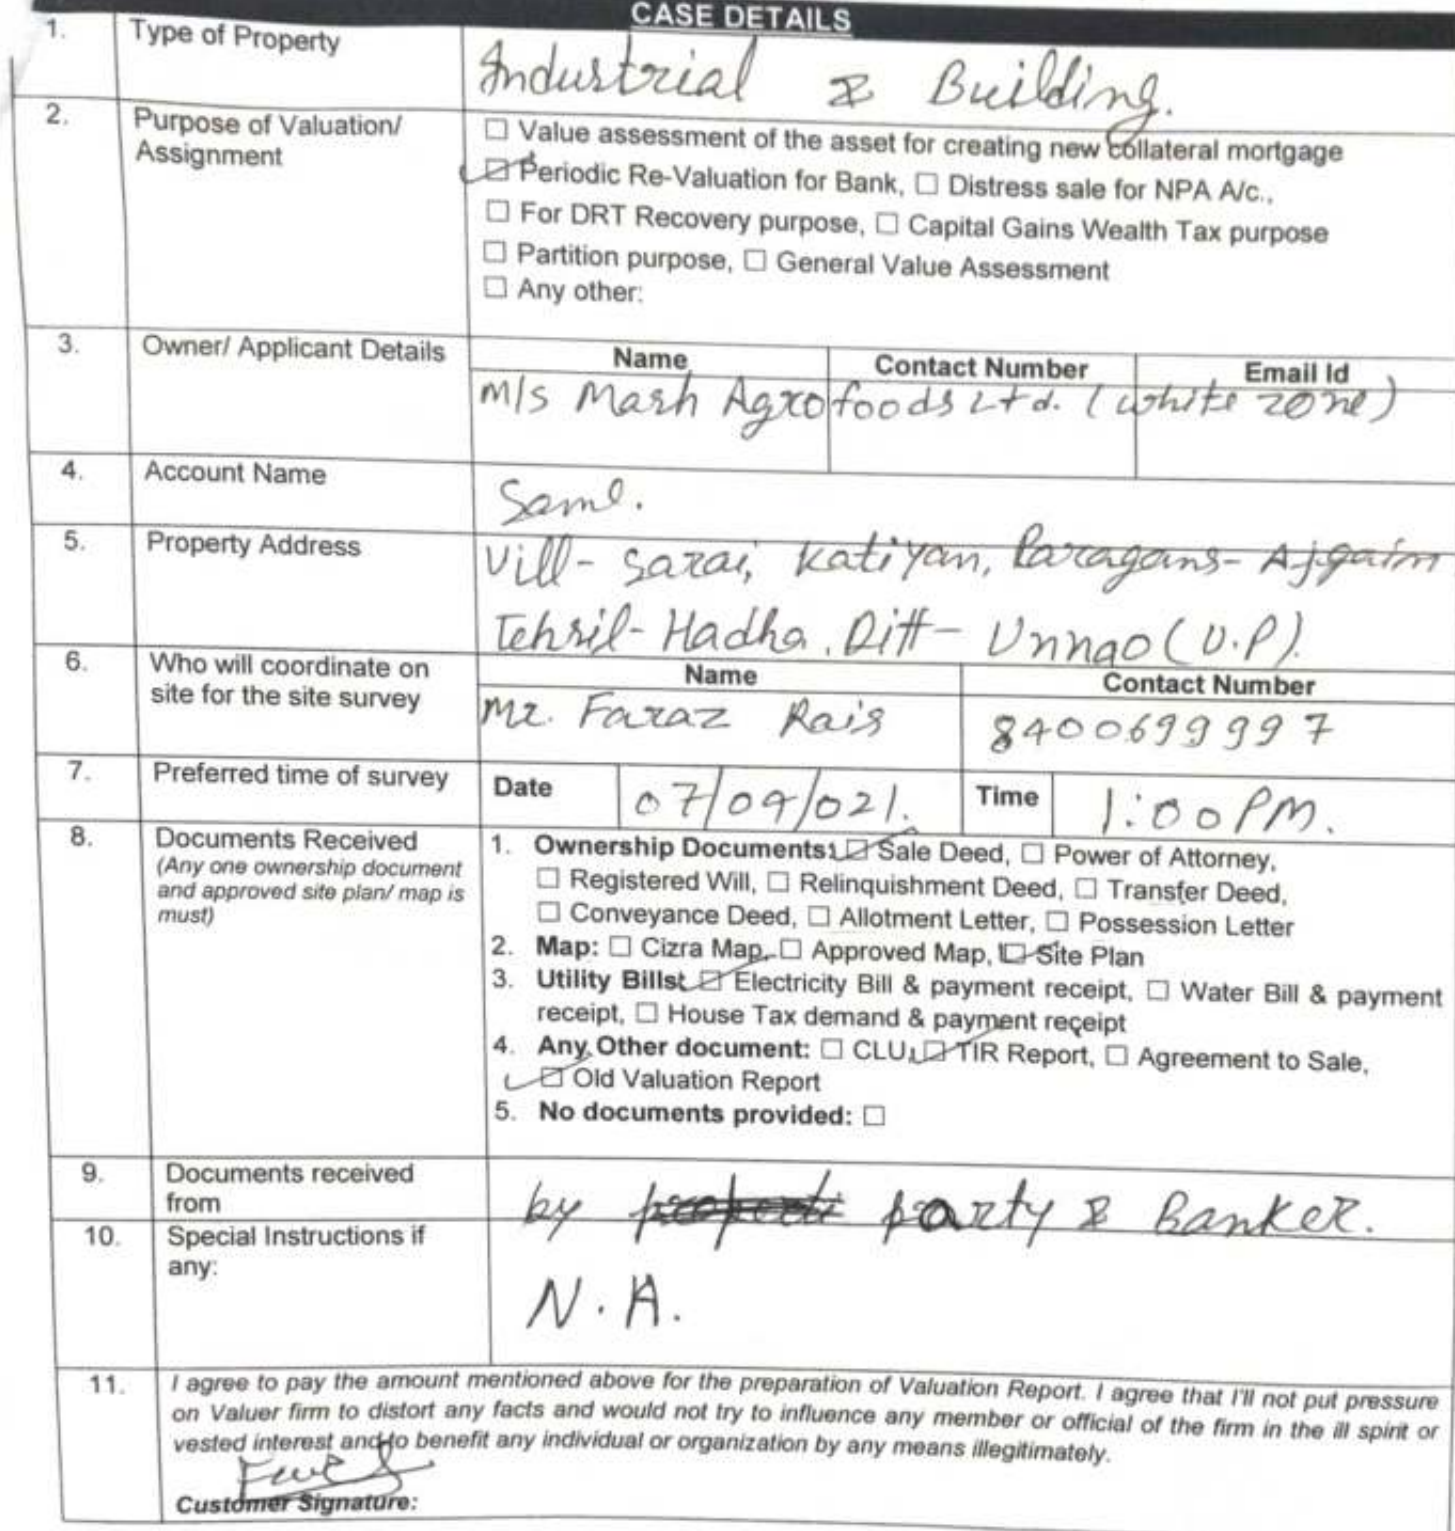 CASE DETAILS
1. Type of Property Industrial & Building.
2. Purpose of Valuation/ Assignment
☐ Value assessment of the asset for creating new collateral mortgage
☑ Periodic Re-Valuation for Bank, ☐ Distress sale for NPA A/c.,
☐ For DRT Recovery purpose, ☐ Capital Gains Wealth Tax purpose
☐ Partition purpose, ☐ General Value Assessment
☐ Any other:
3. Owner/ Applicant Details
Name Contact Number Email Id
M/s Mash Agrofoods Ltd. (white zone)
4. Account Name Same.
5. Property Address
Vill- Sarai, Katiyan, Paragans- Ajgaim
Tehsil- Hadha, Ditt- Unnao (U.P).
6. Who will coordinate on
site for the site survey
Name Contact Number
Mr. Faraz Rais 8400699997
7. Preferred time of survey Date 07/09/021. Time 1:00 PM.
8. Documents Received
(Any one ownership document
and approved site plan/ map is
must)
1. Ownership Documents: ☑ Sale Deed, ☐ Power of Attorney,
☐ Registered Will, ☐ Relinquishment Deed, ☐ Transfer Deed,
☐ Conveyance Deed, ☐ Allotment Letter, ☐ Possession Letter
2. Map: ☐ Cizra Map, ☐ Approved Map, ☑ Site Plan
3. Utility Bills: ☑ Electricity Bill & payment receipt, ☐ Water Bill & payment
receipt, ☐ House Tax demand & payment receipt
4. Any Other document: ☐ CLU, ☑ TIR Report, ☐ Agreement to Sale,
☑ Old Valuation Report
5. No documents provided: ☐
9. Documents received
from
by party & Banker.
10. Special Instructions if
any:
N.A.
11. I agree to pay the amount mentioned above for the preparation of Valuation Report. I agree that I'll not put pressure
on Valuer firm to distort any facts and would not try to influence any member or official of the firm in the ill spirit or
vested interest and to benefit any individual or organization by any means illegitimately.
Customer Signature: